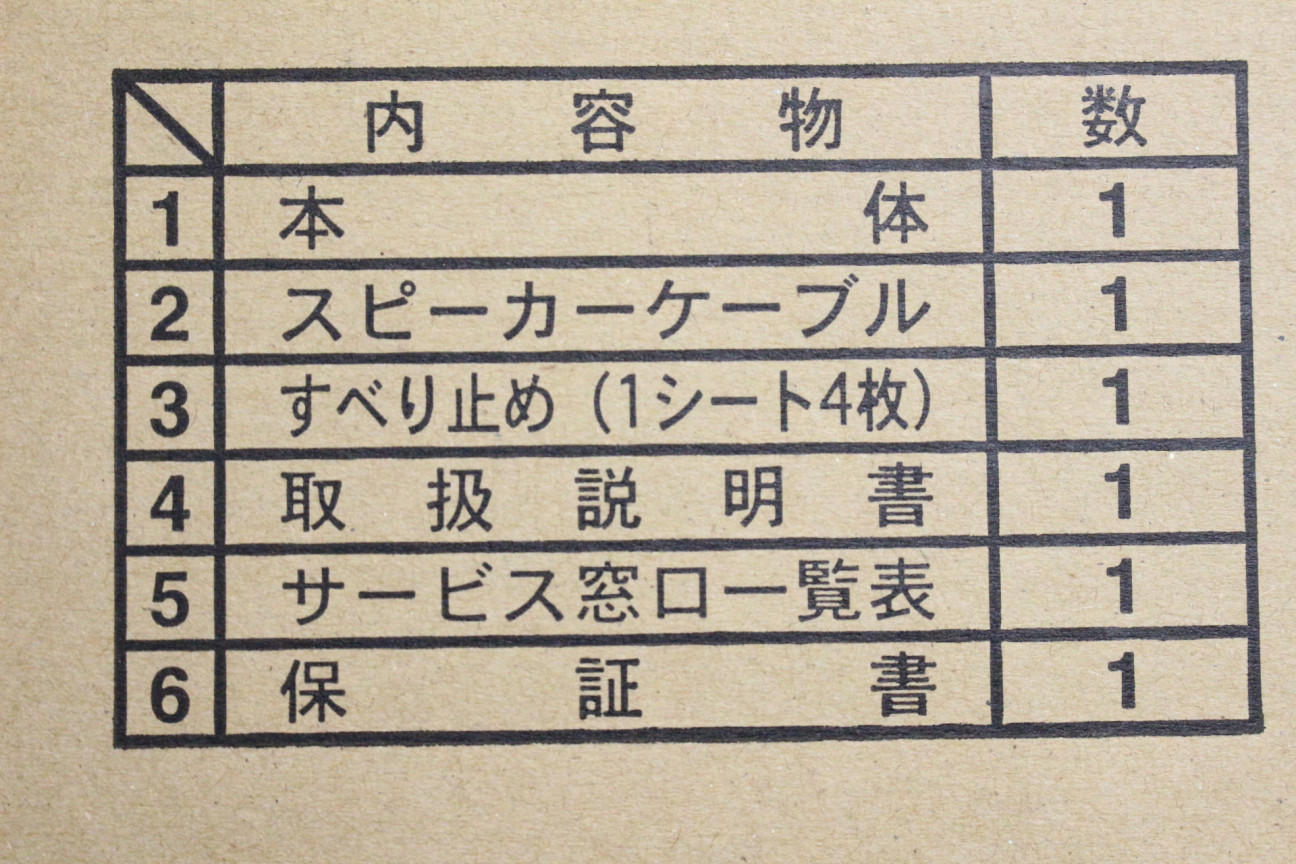 内容物 数
1 本体 1
2 スピーカーケーブル 1
3 すべり止め（1シート4枚） 1
4 取扱説明書 1
5 サービス窓口一覧表 1
6 保証書 1